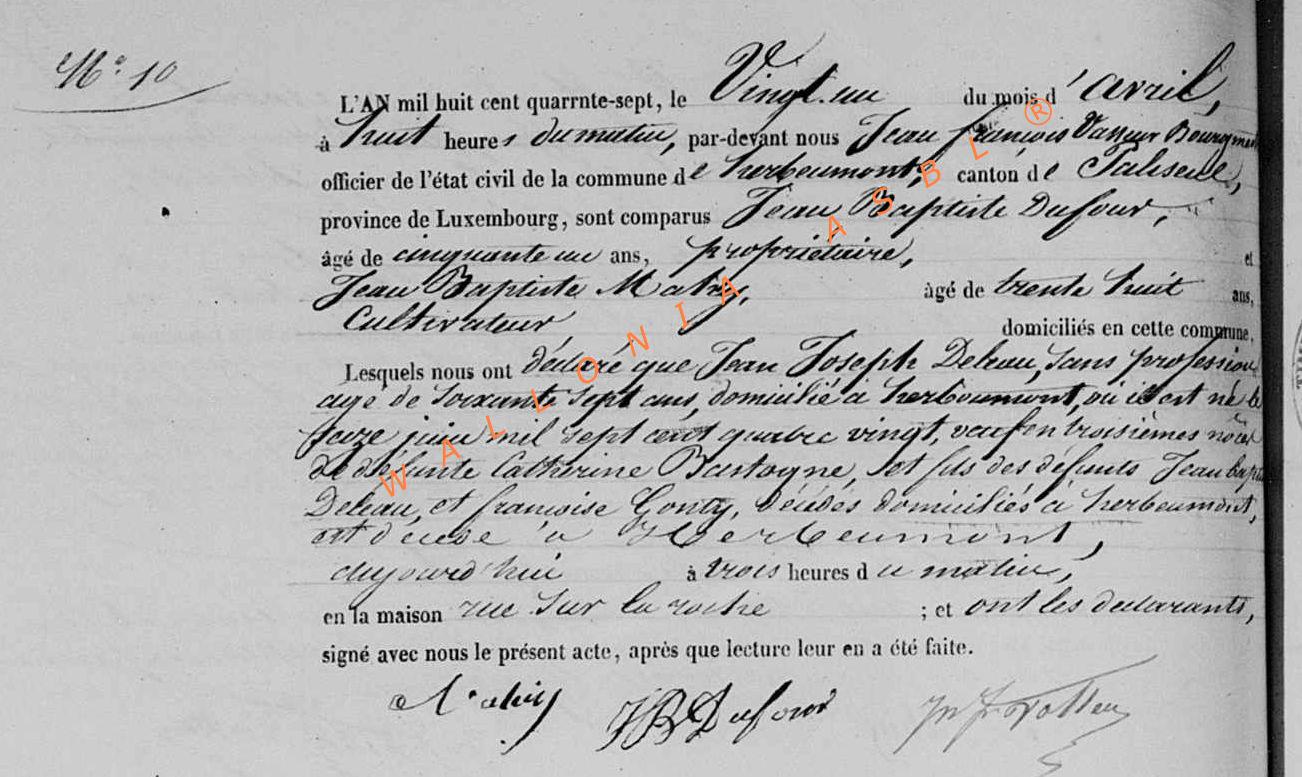 N° 10
L'AN mil huit cent quarrnte-sept, le Vingt-un du mois d'avril,
à huit heures du matin, par-devant nous Jean françois Vasseur Bourgmest
officier de l'état civil de la commune de herbeumont, canton de Paliseul,
province de Luxembourg, sont comparus Jean Baptiste Dufour,
âgé de cinquante un ans, propriétaire, et
Jean Baptiste Mahy, âgé de trente huit ans,
Cultivateur domiciliés en cette commune,
Lesquels nous ont déclaré que Jean Joseph Deleau, sans profession
agé de soixante sept ans, domicilié à herbeumont, où il est né le
seize juin mil sept cent quatre vingt, veuf en troisièmes noces
de défunte Catherine Bastogne, et fils des défunts Jean bapti
Deleau, et françoise Gonty, décédés domiciliés à herbeumont,
est décédé à Herbeumont,
aujourd'hui à trois heures du matin,
en la maison rue Sur la roche ; et ont les declarants,
signé avec nous le présent acte, après que lecture leur en a été faite.
Mahy JB Dufour
WALLONIA ASBL ®